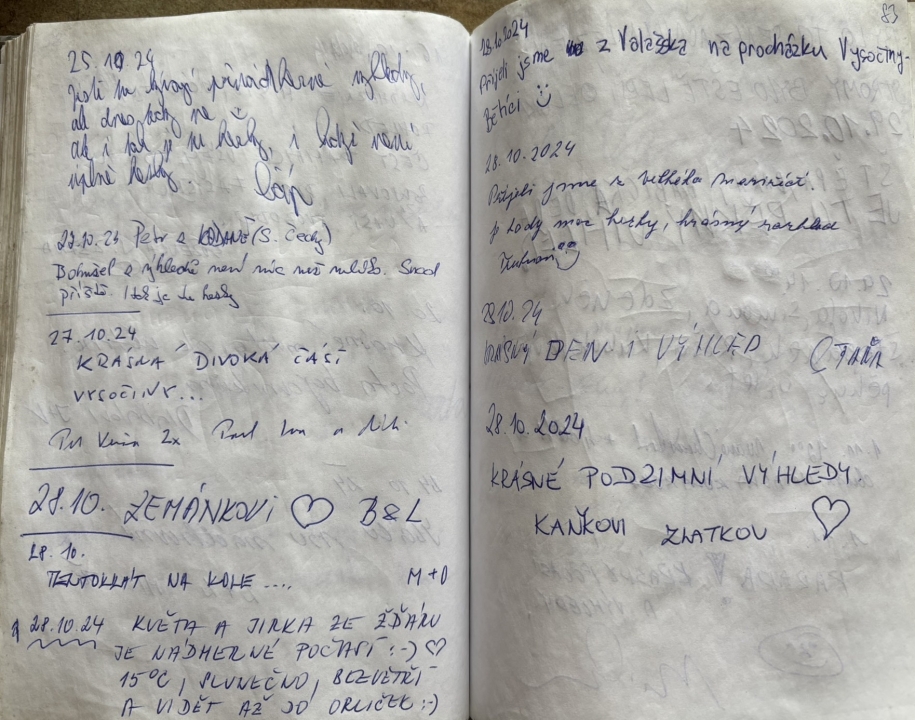 25.10 24
jsou nádherné výhledy,
ale dnes ne
ale i tak je tu hezky, i když není
úplně hezky...
čáp
27.10.24 Petr z KODANĚ (S. Čechy)
Bohužel z výhledů není nic než mlha. Snad
příště. I tak je tu hezky
27.10.24
KRÁSNÁ DIVOKÁ ČÁST
VYSOČINY...
2x a
28.10. ZEMÁNKOVI ♡ B&L
28.10.
TENTOKRÁT NA KOLE .... M+D
28.10.24 KVĚTA A JIRKA ZE ŽĎÁRU
JE NÁDHERNÉ POČASÍ :-) ♡
15°C, SLUNEČNO, BEZVĚTŘÍ
A VIDĚT AŽ DO ORLIČEK :-)
83
28.10.2024
Přijeli jsme z Valašska na procházku Vysočiny.
Běťíci
28.10.2024
Přijeli jsme z Velkého Meziříčí.
moc hezky, krásný rozhled
28.10.24
KRÁSNÝ DEN I VÝHLED
28.10.2024
KRÁSNÉ PODZIMNÍ VÝHLEDY
KAŇKOVI ZLATKOV ♡